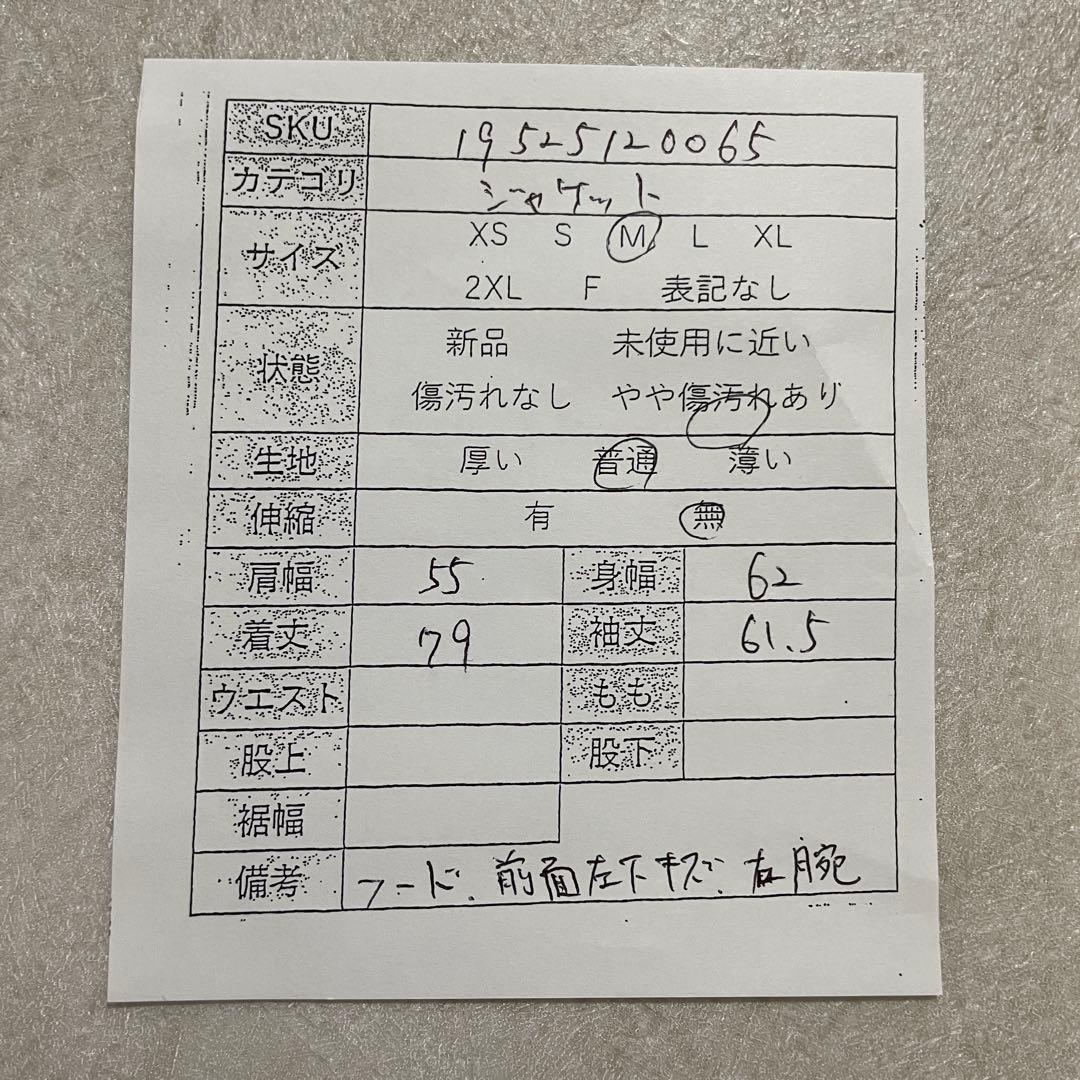 SKU 19525120065
カテゴリ ジャケット
サイズ XS S M L XL
2XL F 表記なし
状態 新品 未使用に近い
傷汚れなし やや傷汚れあり
生地 厚い 普通 薄い
伸縮 有 無
肩幅 55 身幅 62
着丈 79 袖丈 61.5
ウエスト もも
股上 股下
裾幅
備考 フード、前面左下キズ、右腕